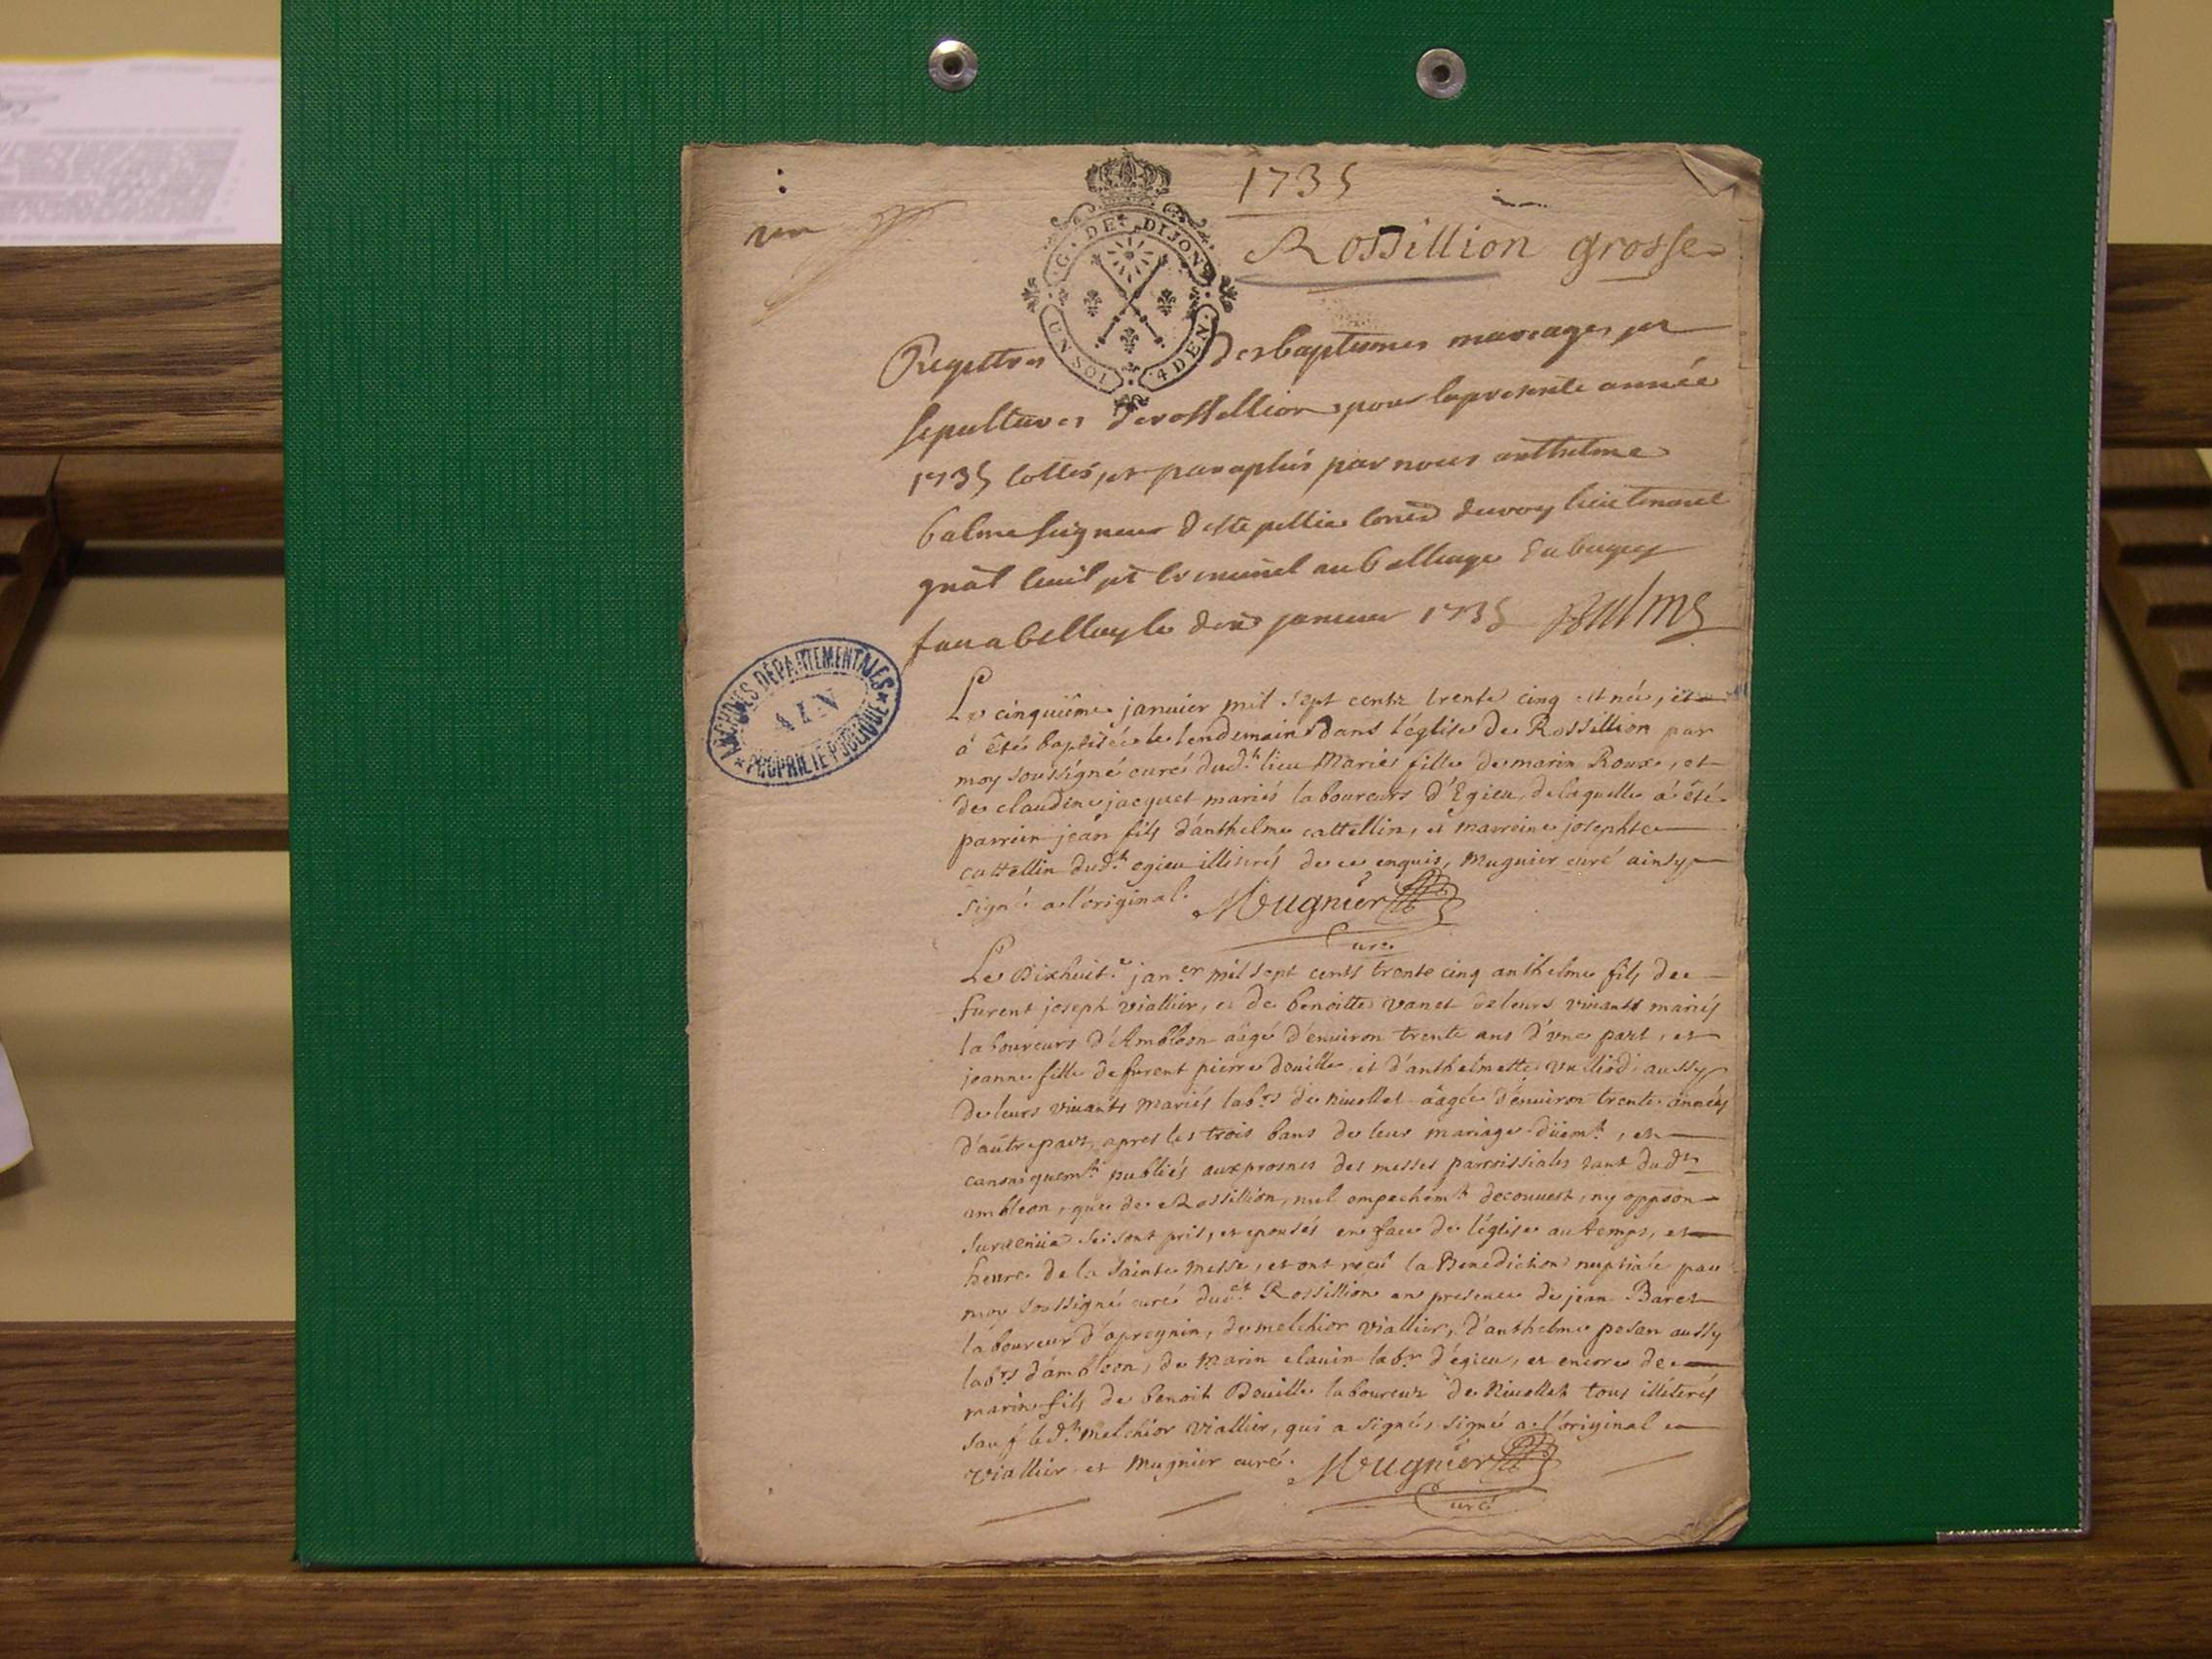 1735
un
G. DE DIJON
UN SOL 4 DEN.
Rossillion grosse
Registres des baptumes mariages et
sepultures de rossellion pour la presente année
1735 cottés et paraphés par nous anthelme
balme seigneur de ste pellie coner du roy lieutenant
gnãl civil et criminel au balliage du bugey
fait a belley le dix janvier 1735 Balme
ARCHIVES DÉPARTEMENTALES
AIN
PROPRIÉTÉ PUBLIQUE
Le cinquiéme janvier mil sept cents trente cinq est née, et
á été baptisée le lendemain dans l'église de Rossillion par
moy soussigné curé dud.t lieu Marie fille de marin Roux, et
de claudine jacquet mariés laboureurs d'Egieu, de laquelle á été
parrein jean fils d'anthelme cattellin, et marreine josephte
cattellin dud.t egieu illiterés de ce enquis, Mugnier curé ainsy
signé a l'original. Mugnier
curé
Le Dixhuit.e jan.er mil sept cents trente cinq anthelme fils de
furent joseph viallier, et de benoitte vanet de leurs vivants mariés
laboureurs d'Ambléon aägé d'environ trente ans d'une part, et
jeanne fille de furent pierre douille et d'anthelmette vulliod aussy
de leurs vivants mariés lab.rs de nivollet aägée d'environ trente années
d'autre part, apres les trois bans de leur mariage düem.t, et
canoniquem.t publiés aux prosnes des messes parroissiales tant dud.t
ambleon, que de Rossillion, nul empechem.t decouvert, ny oppon
survenüe se sont pris, et epousés en face de l'église au temps, et
heure de la sainte messe, et ont reçu la Benediction nuptiale par
moy soussigné curé dud.t Rossillion en presence de jean Baret
laboureur d'apregnin, de melchior viallier, d'anthelme pesan aussy
lab.rs d'ambleon, de marin clavin lab.r d'égieu, et encore de
marin fils de benoit Douille laboureur de Nivollet tous illiterés
sauf led.t melchior viallier, qui a signé, signé a l'original
viallier et Mugnier curé. Mugnier
curé